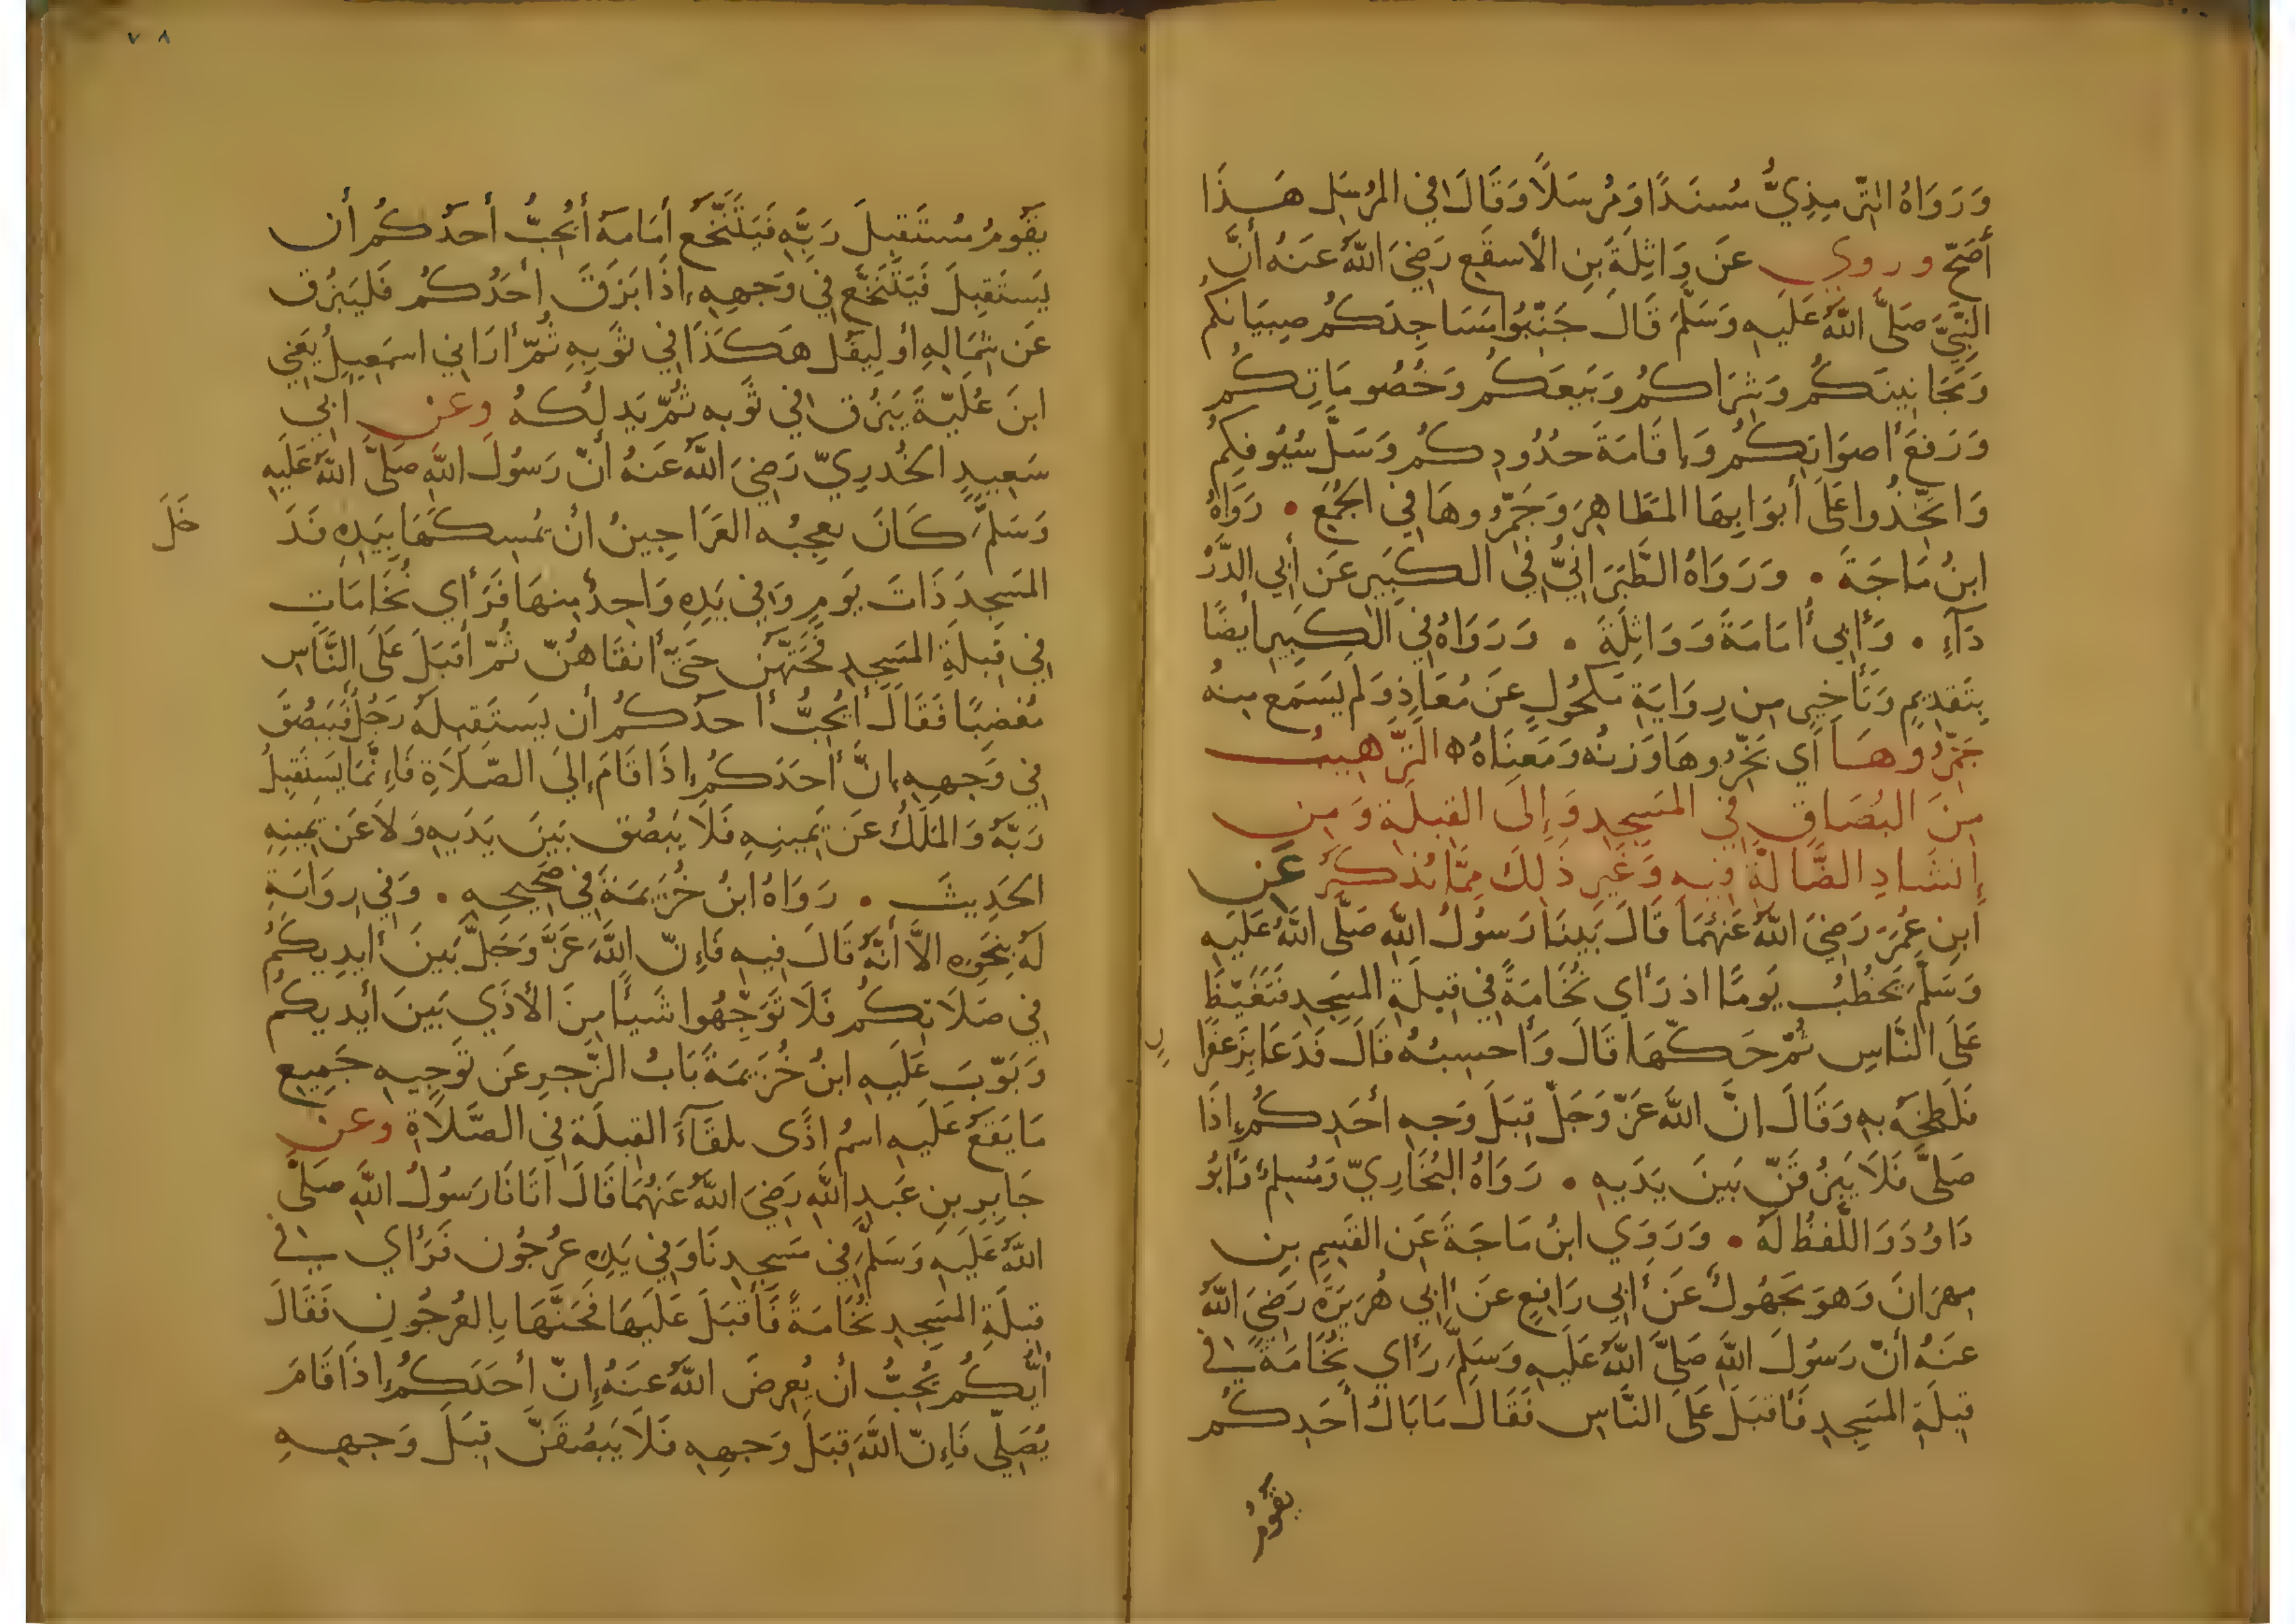 وَرَوَاهُ التِّرمِذِيُّ مُسنَدًا وَمُرسَلًا وَقَالَ فِي المُرسَلِ هَذَا
أَصَحّ وروي عَن وَاثِلَةَ بنِ الأَسقَعِ رَضِيَ اللَّهُ عَنهُ أَنَّ
النَّبِيَّ صَلَّى اللَّهُ عَلَيهِ وَسَلَّمَ قَالَ جَنِّبُوا مَسَاجِدَكُم صِبيَانَكُم
وَمَجَانِينَكُم وَشِرَاكُم وَبَيعَكُم وَخُصُومَاتِكُم
وَرَفعَ أَصوَاتِكُم وَإِقَامَةَ حُدُودِكُم وَسَلَّ سُيُوفِكُم
وَاتَّخِذُوا عَلَى أَبوَابِهَا المَطَاهِرَ وَجَمِّرُوهَا فِي الجُمَعِ • رَوَاهُ
ابنُ مَاجَةَ • وَرَوَاهُ الطَّبَرَانِيُّ فِي الكَبِيرِ عَن أَبِي الدَّر
دَآءِ • وَأَبِي أُمَامَةَ وَوَاثِلَةَ • وَرَوَاهُ فِي الكَبِيرِ أَيضًا
بِتَقدِيمٍ وَتَأخِيرٍ مِن رِوَايَةِ مَكحُولٍ عَن مُعَاذٍ وَلَم يَسمَع مِنهُ
جَمِّرُوهَا أَي بَخِّرُوهَا وَزنُه وَمَعنَاهُ ه التَّرهِيبُ
مِنَ البُصَاقِ فِي المَسجِدِ وَإِلَى القِبلَةِ وَمِن
إِنشَادِ الضَّالَّةِ فِيهِ وَغَيرِ ذَلِكَ مِمَّا يُذكَرُ عَنِ
ابنِ عُمَرَ رَضِيَ اللَّهُ عَنهُمَا قَالَ بَينَا رَسُولُ اللَّهِ صَلَّى اللَّهُ عَلَيهِ
وَسَلَّمَ يَخطُبُ يَومًا اذ رَأَي نُخَامَةً فِي قِبلَةِ المَسجِدِ فَتَغَيَّظَ
عَلَى النَّاسِ ثُمَّ حَكَّهَا قَالَ وَأَحسِبُهُ قَالَ فَدَعَا بِزَعفَرَا
فَلَطَخَهُ بِهِ وَقَالَ انَّ اللَّهَ عَزَّ وَجَلَّ قِبَلَ وَجهِ أَحَدِكُم إِذَا
صَلَّى فَلَا يَبزُقَنَّ بَينَ يَدَيهِ • رَوَاهُ البُخَارِيّ وَمُسلِمٌ وَأَبُو
دَاوُدَ وَاللَّفظُ لَهُ • وَرَوَي ابنُ مَاجَةَ عَنِ القَسِمِ بنِ
مِهرَانَ وَهوَ مَجهُولٌ عَن أَبِي رَافِعٍ عَن أَبِي هُرَيرَةَ رَضِيَ اللَّهُ
عَنهُ أَنّ رَسُولَ اللَّهِ صَلَّى اللَّهُ عَلَيهِ وَسَلَّمَ رَأَي نُخَامَةً فِي
قِبلَةِ المَسجِدِ فَأَقبَلَ عَلَى النَّاسِ فَقَالَ مَا بَالُ أَحَدِكُم
يَقُومُ
٧٨
يَقُومُ مُستَقبِلَ رَبِّهِ فَيَتَنَخَّعُ أَمَامَهُ أَيُحِبُّ أَحَدُكُم أَن
يُستَقبَلَ فَيُتَنَخَّعَ فِي وَجهِهِ إِذَا بَزَقَ أَحَدُكُم فَليَبزُق
عَن شِمَالِهِ أَو لِيَقُل هَكَذَا فِي ثَوبِهِ ثُمَّ أَرَانِي اسمَعِيلُ يَعنِي
ابنَ عُلَيَّةَ يَبزُق فِي ثَوبِهِ ثُمَّ يَدلُكُهُ وعن أَبِي
سَعِيدٍ الخُدرِيّ رَضِيَ اللَّهُ عَنهُ أَنّ رَسُولَ اللَّهِ صَلَّى اللَّهُ عَلَيهِ
وَسَلَّمَ كَانَ يعجِبُه العَرَاجِينُ أَن يُمسِكَهَا بِيَدِهِ فَدَ
خَلَ
المَسجِدَ ذَاتَ يَومٍ وَفِي يَدِهِ وَاحِدٌ مِنهَا فَرَأَي نُخَامَاتٍ
فِي قِبلَةِ المَسجِدِ فَحَتَّهُنَّ حَتَّى أَنقَاهُنّ ثُمّ أَقبَلَ عَلَى النَّاسِ
مُغضَبًا فَقَالَ أَيُحِبُّ أَحدُكُم أَن يَستَقبِلَهُ رَجُلٌ فَيَبصُقَ
فِي وَجهِهِ إِنَّ أَحَدَكُم إِذَا قَامَ إِلَى الصَّلَاةِ فَإِنَّمَا يَستَقبِلُ
رَبَّهُ وَالمَلَكُ عَن يَمِينِهِ فَلَا يَبصُق بَينَ يَدَيهِ وَلَا عَن يَمِينِهِ
الحَدِيثَ • رَوَاهُ ابنُ خُزَيمَةَ فِي صَحِيحِهِ • وَفِي رِوَايَةٍ
لَهُ بِنَحوِهِ الاَّ أَنَّهُ قَالَ فِيهِ فَإِنّ اللَّهَ عَزَّ وَجَلَّ بَينَ أَيدِيكُم
فِي صَلَاتِكُم فَلَا تُوَجِّهُوا شَيأً مِنَ الأَذَي بَينَ أَيدِيكُم
وَبَوَّبَ عَلَيهِ ابنُ خُزَيمَةَ بَابُ الزَّجرِ عَن تَوجِيهِ جَمِيعِ
مَا يَقَعُ عَلَيهِ اسمُ اذًى تلقَآءَ القِبلَةِ فِي الصَّلَاةِ وعن
جَابِرِ بنِ عَبدِ اللَّهِ رَضِيَ اللَّهُ عَنهُمَا قَالَ أَتَانَا رَسُولُ اللَّهِ صَلَّى
اللَّهُ عَلَيهِ وَسَلَّمَ فِي مَسجِدِنَا وَفِي يَدِهِ عُرجُون فَرَأَي فِي
قِبلَةِ المَسجِدِ نُخَامَةً فَأَقبَلَ عَلَيهَا فَحَتَّهَا بِالعُرجُونِ فَقَالَ
أَيُّكُم يُحِبُّ أَن يُعرِضَ اللَّهُ عَنهُ إِنّ أَحَدَكُم إِذَا قَامَ
يُصَلِّي فَإِنّ اللَّهَ قِبَلَ وَجهِهِ فَلَا يَبصُقَنَّ قِبَلَ وَجهِهِ